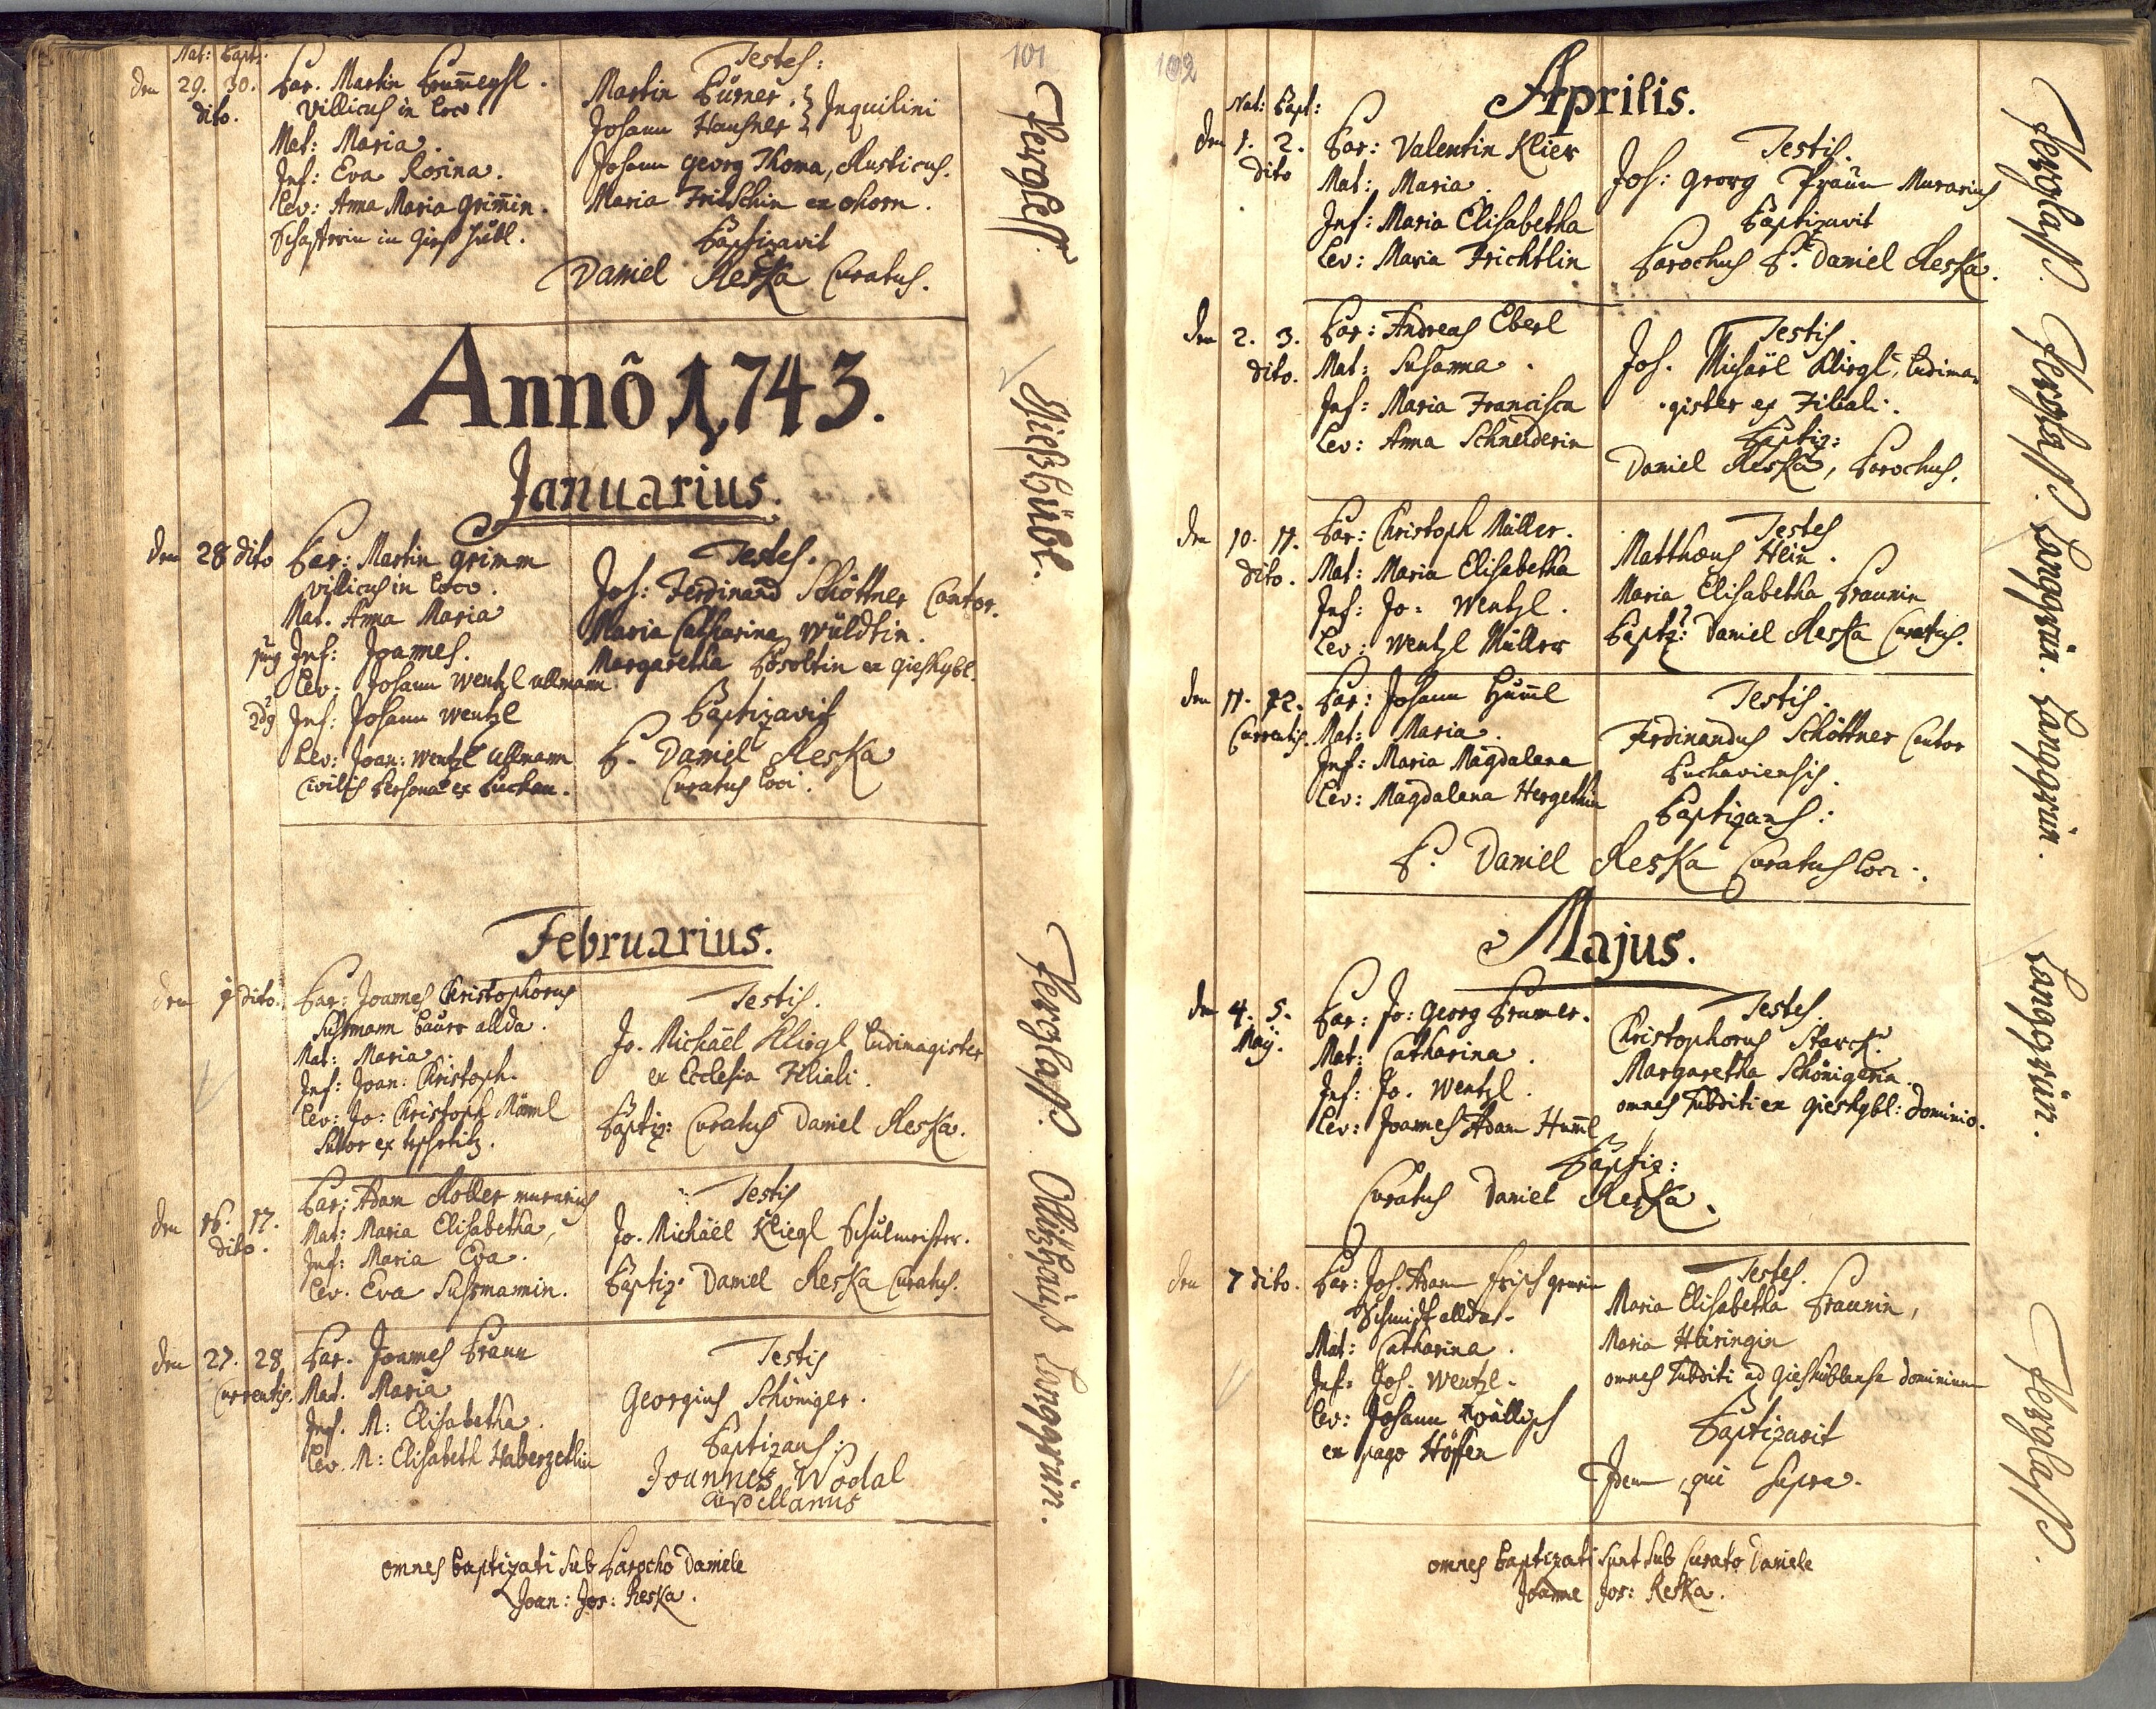 101
Nat: Bapt:
den 29. 30. dito.
Par. Martin Brum̃eysl.
Villicus in loco.
Mat: Maria.
Inf: Eva Rosina.
Lev: Anna Maria Grim̃in.
Schafferin in Gieshübl.
Testes:
Martin Burner. } Inquilini
Johann Hausner }
Johann Georg Thoma, Rusticus.
Maria Fritschin ex
Baptizavit
Daniel Reska Curatus.
Annô 1743.
Januarius.
Gieshübl.
den 28 dito
Par: Martin Grimm
villicus in loco.
Mat. Anna Maria
Inf: Joannes.
Lev: Johann Wentzl Ullmann
Inf: Johann Wentzl
Lev: Joan: Wentzl Ullmann
Civilis Persona ex Buchau.
Testes.
Joh: Ferdinand Schöttner Cantor.
Maria Catharina Wüldtin.
Margaretha Bösoltin ex Gieshybl.
Baptizavit
P. Daniel Reska
Curatus loci.
Februarius.
Herglass.
den 9 dito.
Par: Joannes Christophorus
Susmann Baurr allda.
Mat: Maria.
Inf: Joan: Christoph.
Lev: Jo: Christoph
Sutor ex
Testis.
Jo. Michaël Kliegl Ludimagister
ex Ecclesia Filiali.
Baptiz: Curatus Daniel Reska.
den 16. 17. dito.
Par: Adam Roller murarius
Mat: Maria Elisabetha,
Inf: Maria Eva.
Lev. Eva Susmannin.
Testis
Jo. Michaël Kliegl Schulmeister.
Baptiz. Daniel Reska Curatus.
den 27. 28. Currentis.
Langgrün.
Par. Joannes Braun
Mat. Maria
Inf. M: Elisabetha.
Lev. M: Elisabeth Haberzetlin
Testis
Georgius Schöniger.
Baptizans:
Joannes Wodal
Capellanus
omnes baptizati sub Parocho Daniele
Joan: Jos: Reska.
102
Aprilis.
Nat: Bapt:
den 1. 2. dito
Par: Valentin Klier
Mat: Maria.
Inf: Maria Elisabetha
Lev: Maria Frichtlin
Testis.
Joh: Georg Praun Murarius
Baptizavit
Parochus P. Daniel Reska.
Herglass.
den 2. 3. dito.
Par: Andreas Eberl
Mat: Susanna.
Inf: Maria Francisca
Lev: Anna Schneiderin
Testis.
Joh. Michaël Kliegl, Ludima-
gister ex Filiali.
Baptiz:
Daniel Reska, Parochus.
Herglass.
den 10. 11. dito.
Par: Christoph Müller.
Mat: Maria Elisabetha
Inf: Jo: Wentzl.
Lev: Wentzl Müller
Testes
Matthæus Hein.
Maria Elisabetha Braunin
Baptz: Daniel Reska Curatus.
Langgrün.
den 11. 12. Currentis.
Par: Johann Hum̃l
Mat: Maria.
Inf: Maria Magdalena
Lev: Magdalena Hergethin
Testis.
Ferdinandus Schöttner Cantor
Buchaviensis.
Baptizans:
P. Daniel Reska Curatus loci.
Langgrün.
Majus.
den 4. 5. Maÿ.
Par: Jo: Georg Brumer.
Mat: Catharina.
Inf: Jo. Wentzl.
Lev: Joannes Adam Hum̃l
Testes.
Christophorus Starck.
Margaretha Schönigerin.
omnes Subditi ex Gieshybl: Dominio.
Baptiz:
Curatus Daniel Reska.
Langgrün.
den 7 dito.
Par: Joh. Adam
Schmidt allda.
Mat: Catharina.
Inf: Joh. Wentzl.
Lev: Johann Wällisch
ex pago Höffen
Testes.
Maria Elisabetha Braunin,
Maria Häringin
omnes Subditi ad Gieshüblense Dominium
Baptizavit
Idem, qui supra.
Herglass.
omnes baptizati sunt sub Curato Daniele
Joanne Jos: Reska.